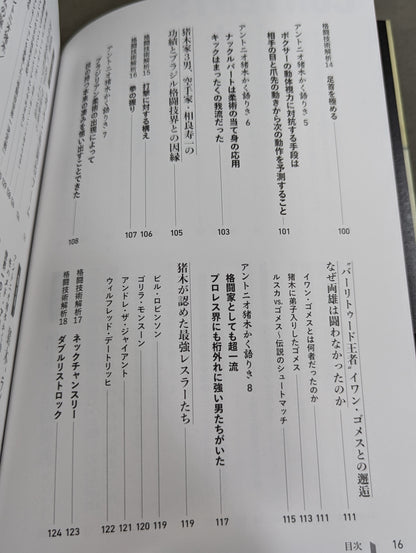 格闘技術解析14 足首を極める 100
アントニオ猪木かく語りき 5
ボクサーの動体視力に対抗する手段は
相手の目と爪先の動きから次の動作を予測すること 101
アントニオ猪木かく語りき 6
ナックルパートは柔術の当て身の応用
キックはまったくの我流だった 103
猪木家3男、空手家・相良寿一の
功績とブラジル格闘技界との因縁 105
格闘技術解析15 打撃に対する構え 106
格闘技術解析16 夢の握り 107
アントニオ猪木かく語りき 7
ブラジリアン柔術の出現によって
技の持つ本来の凄みを思い出すことできた 108
“バーリトゥード王者”イワン・ゴメスとの邂逅
なぜ両雄は闘わなかったのか 111
イワン・ゴメスとは何者だったのか 111
猪木に弟子入りしたゴメス 113
ルスカvs.ゴメス〜伝説のシュートマッチ 115
アントニオ猪木かく語りき 8
格闘家としても超一流
プロレス界にも桁外れに強い男たちがいた 117
猪木が認めた最強レスラーたち 119
ビル・ロビンソン 119
ゴリラ・モンスーン 120
アンドレ・ザ・ジャイアント 121
ウィルフレッド・デートリッヒ 122
格闘技術解析17 ネックチャンスリー 123
格闘技術解析18 ダブルリストロック 124
目次 16